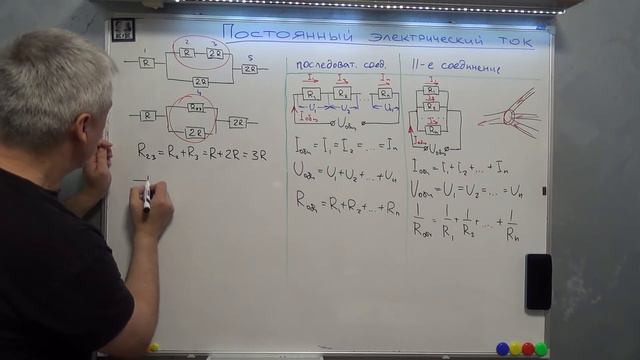 Постоянный электрический ток
1 R 2 R 3 2R 2R 5 2R
4
R R₂₃ 2R 2R
R₂₃ = R₂ + R₃ = R + 2R = 3R
последоват. соед.
I₁ I₂ Iₙ
R₁ R₂ ... Rₙ
U₁ U₂ ... Uₙ
Iобщ Uобщ
Iобщ = I₁ = I₂ = ... = Iₙ
Uобщ = U₁ + U₂ + ... + Uₙ
Rобщ = R₁ + R₂ + ... + Rₙ
||-е соединение
I₁
R₁
I₂
R₂
Iₙ
Rₙ
Iобщ Uобщ
Iобщ = I₁ + I₂ + ... + Iₙ
Uобщ = U₁ = U₂ = ... = Uₙ
1/Rобщ = 1/R₁ + 1/R₂ + ... + 1/Rₙ